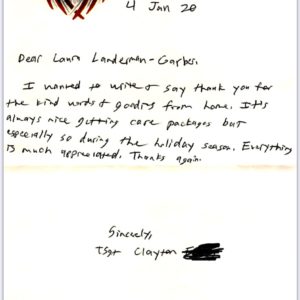 4 Jan 20
Dear Laura Landerman-Garber,
I wanted to write & say thank you for
the kind words & goodies from home. It's
always nice getting care packages but
especially so during the holiday season. Everything
is much appreciated. Thanks again.
Sincerely,
TSgt Clayton